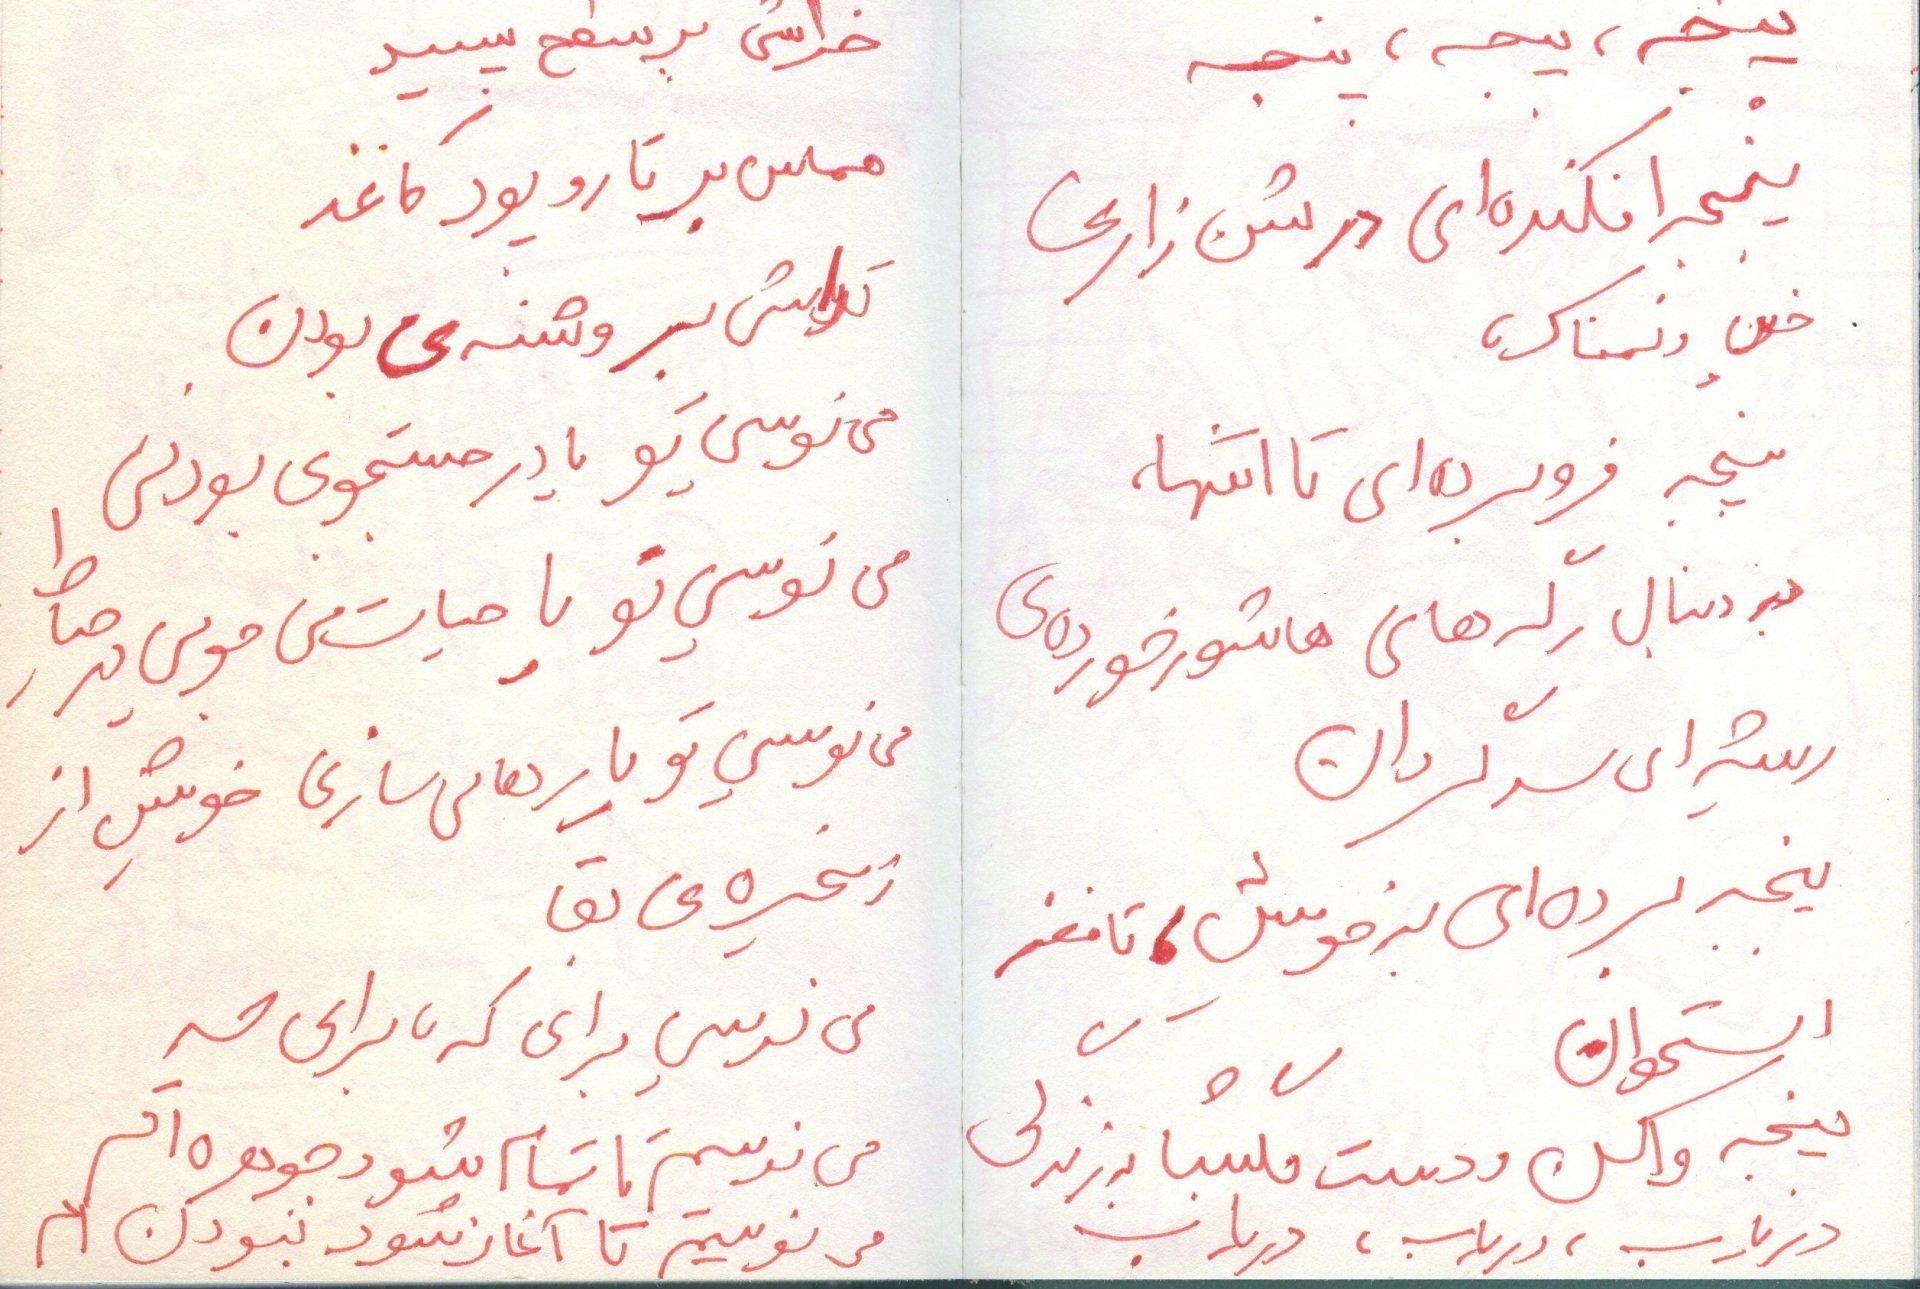 پنجه، پنجه، پنجه
پنجه افکنده‌ای در شن زاری
خیس و نمناک،
پنجه فرو برده‌ای تا انتها،
به دنبال رگه‌های هاشور خورده‌ی
ریشه‌ای سرگردان
پنجه برده‌ای به خویش، تا مغز
استخوان
پنجه واکن و دست بگشا به زندگی
دریاب، دریاب، دریاب
خراشی بر سطح سپید
مماس بر تار و پود کاغذ
تراشی بر وشنه‌ی بودن
می نویسی تو یا در جستجوی بودنی
می نویسی تو یا حیات می جویی در
می نویسی تو یا رها می سازی خویش از
زنجیره‌ی بقا
می نویسی برای که، برای چه
می نویسم تا تمام شود جوهره ام
می نویسم تا آغاز شود نبودن ام